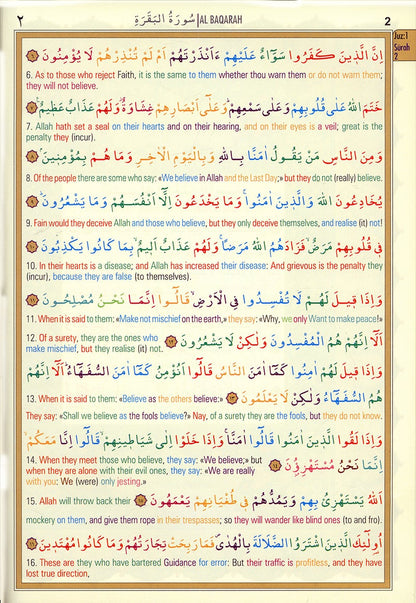 ٢ سُورَةُ البَقَرَةِ | AL BAQARAH 2
Juz:1
Sūrah
2
إِنَّ الَّذِينَ كَفَرُوا سَوَاءٌ عَلَيْهِمْ ءَأَنذَرْتَهُمْ أَمْ لَمْ تُنذِرْهُمْ لَا يُؤْمِنُونَ ٦
6. As to those who reject Faith, it is the same to them whether thou warn them or do not warn them;
they will not believe.
خَتَمَ اللهُ عَلَى قُلُوبِهِمْ وَعَلَى سَمْعِهِمْ وَعَلَى أَبْصَارِهِمْ غِشَاوَةٌ وَلَهُمْ عَذَابٌ عَظِيمٌ ٧
7. Allah hath set a seal on their hearts and on their hearing, and on their eyes is a veil; great is the
penalty they (incur).
وَمِنَ النَّاسِ مَنْ يَقُولُ آمَنَّا بِاللهِ وَبِالْيَوْمِ الْآخِرِ وَمَا هُمْ بِمُؤْمِنِينَ ٨
8. Of the people there are some who say: «We believe in Allah and the Last Day;» but they do not (really) believe.
يُخَادِعُونَ اللهَ وَالَّذِينَ آمَنُوا وَمَا يَخْدَعُونَ إِلَّا أَنْفُسَهُمْ وَمَا يَشْعُرُونَ ٩
9. Fain would they deceive Allah and those who believe, but they only deceive themselves, and realise (it) not!
فِي قُلُوبِهِمْ مَرَضٌ فَزَادَهُمُ اللهُ مَرَضًا وَلَهُمْ عَذَابٌ أَلِيمٌ بِمَا كَانُوا يَكْذِبُونَ ١٠
10. In their hearts is a disease; and Allah has increased their disease: And grievous is the penalty they
(incur), because they are false (to themselves).
وَإِذَا قِيلَ لَهُمْ لَا تُفْسِدُوا فِي الْأَرْضِ قَالُوا إِنَّمَا نَحْنُ مُصْلِحُونَ ١١
11. When it is said to them: «Make not mischief on the earth,» they say: «Why, we only Want to make peace!»
12. Of a surety, they are the ones who أَلَا إِنَّهُمْ هُمُ الْمُفْسِدُونَ وَلَكِنْ لَا يَشْعُرُونَ ١٢
make mischief, but they realise (it) not.
وَإِذَا قِيلَ لَهُمْ آمِنُوا كَمَا آمَنَ النَّاسُ قَالُوا أَنُؤْمِنُ كَمَا آمَنَ السُّفَهَاءُ أَلَا إِنَّهُمْ
13. When it is said to them: «Believe as the others believe:» هُمُ السُّفَهَاءُ وَلَكِنْ لَا يَعْلَمُونَ ١٣
They say: «Shall we believe as the fools believe?» Nay, of a surety they are the fools, but they do not know.
وَإِذَا لَقُوا الَّذِينَ آمَنُوا قَالُوا آمَنَّا وَإِذَا خَلَوْا إِلَى شَيَاطِينِهِمْ قَالُوا إِنَّا مَعَكُمْ
14. When they meet those who believe, they say: «We believe;» but إِنَّمَا نَحْنُ مُسْتَهْزِؤُنَ ١٤
when they are alone with their evil ones, they say: «We are really
with you: We (were) only jesting.»
15. Allah will throw back their اللهُ يَسْتَهْزِئُ بِهِمْ وَيَمُدُّهُمْ فِي طُغْيَانِهِمْ يَعْمَهُونَ ١٥
mockery on them, and give them rope in their trespasses; so they will wander like blind ones (to and fro).
أُولَئِكَ الَّذِينَ اشْتَرَوُا الضَّلَالَةَ بِالْهُدَى فَمَا رَبِحَتْ تِجَارَتُهُمْ وَمَا كَانُوا مُهْتَدِينَ ١٦
16. These are they who have bartered Guidance for error: But their traffic is profitless, and they have
lost true direction,